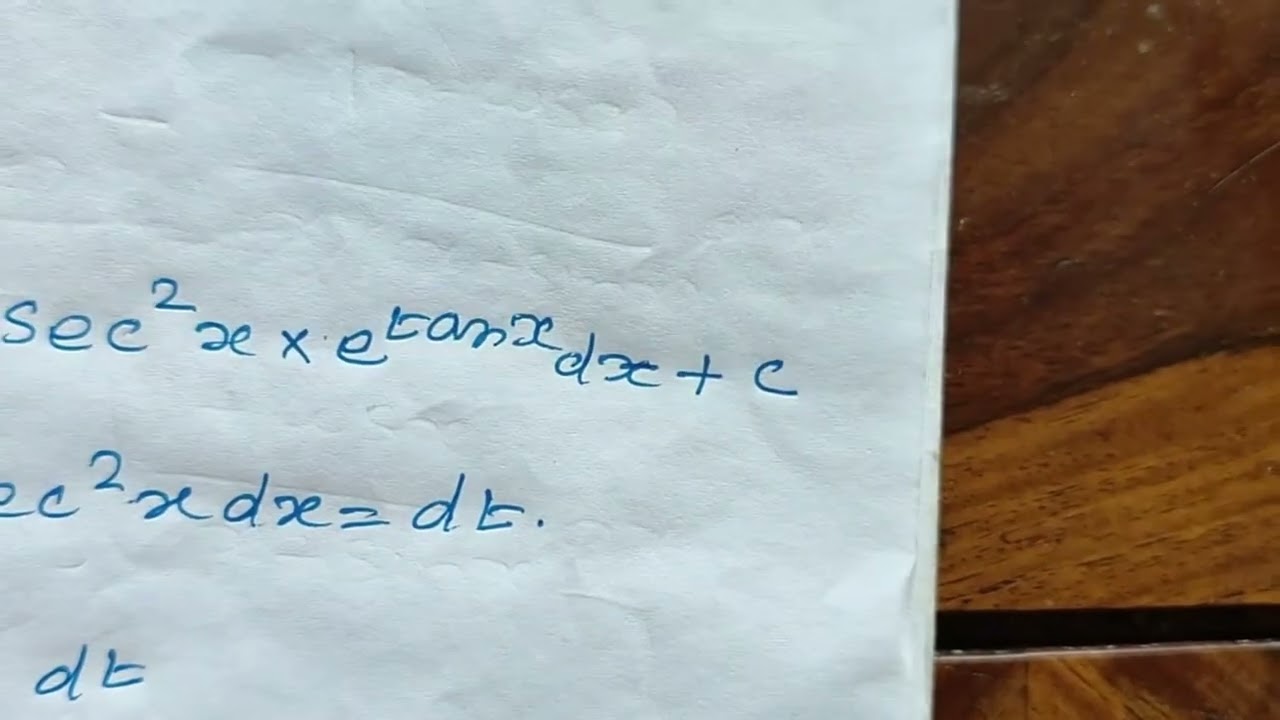 sec²x × e^tanx dx + c
ec²x dx = dt.
dt